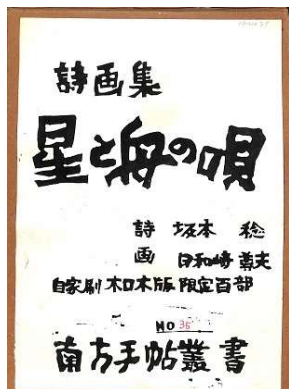 詩画集
星と毋の唄
詩 坂本 稔
画 日和崎 尊夫
自家刷 木口木版 限定百部
NO 35
南方手帖叢書